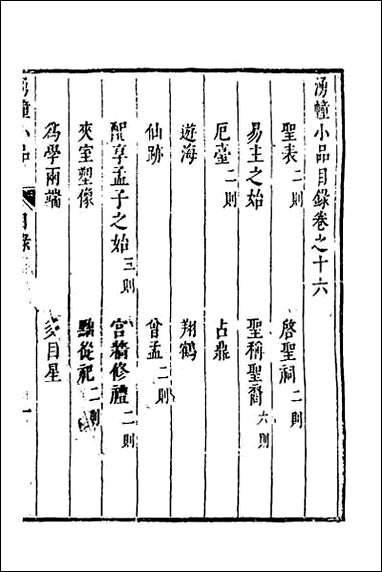 湧幢小品目錄卷之十六
聖表二則 啓聖祠二則
易主之始 聖稱聖裔六則
厄臺二則 占鼎
遊海 翔鶴
仙跡 曾孟二則
配享孟子之始三則 宫牆修禮二則
夾室塑像 黜從祀二則
爲學兩端 目星
湧幢小品 目錄 一